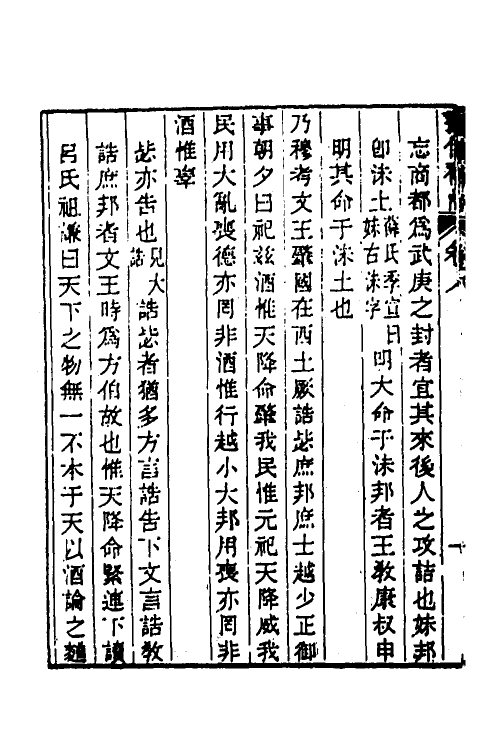 忘商都爲武庚之封者宜其來後人之攻詰也妹邦
卽沬土薛氏季宣曰妹古沬字明大命于沬邦者王敎康叔申
明其命于沬土也
乃穆考文王肇國在西土厥誥毖庶邦庶士越少正御
事朝夕曰祀茲酒惟天降命肇我民惟元祀天降威我
民用大亂喪德亦罔非酒惟行越小大邦用喪亦罔非
酒惟辜
毖亦告也見大誥誥毖者猶多方言誥告下文言誥敎
誥庶邦者文王時爲方伯故也惟天降命緊連下讀
呂氏祖謙曰天下之物無一不本于天以酒論之麯